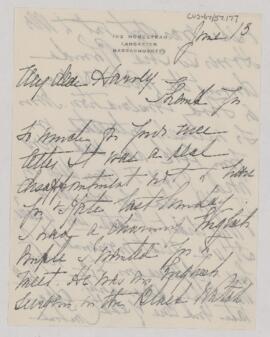 THE HOMESTEAD
LANCASTER
MASSACHUSETTS
June 15
My dear Harvey
Thank you
so much for your nice
letter. It was a real
disappointment not to have
you & Kate last Sunday
I had a charming English
couple I wanted you to
meet. He was an English
surgeon in the Black Watch